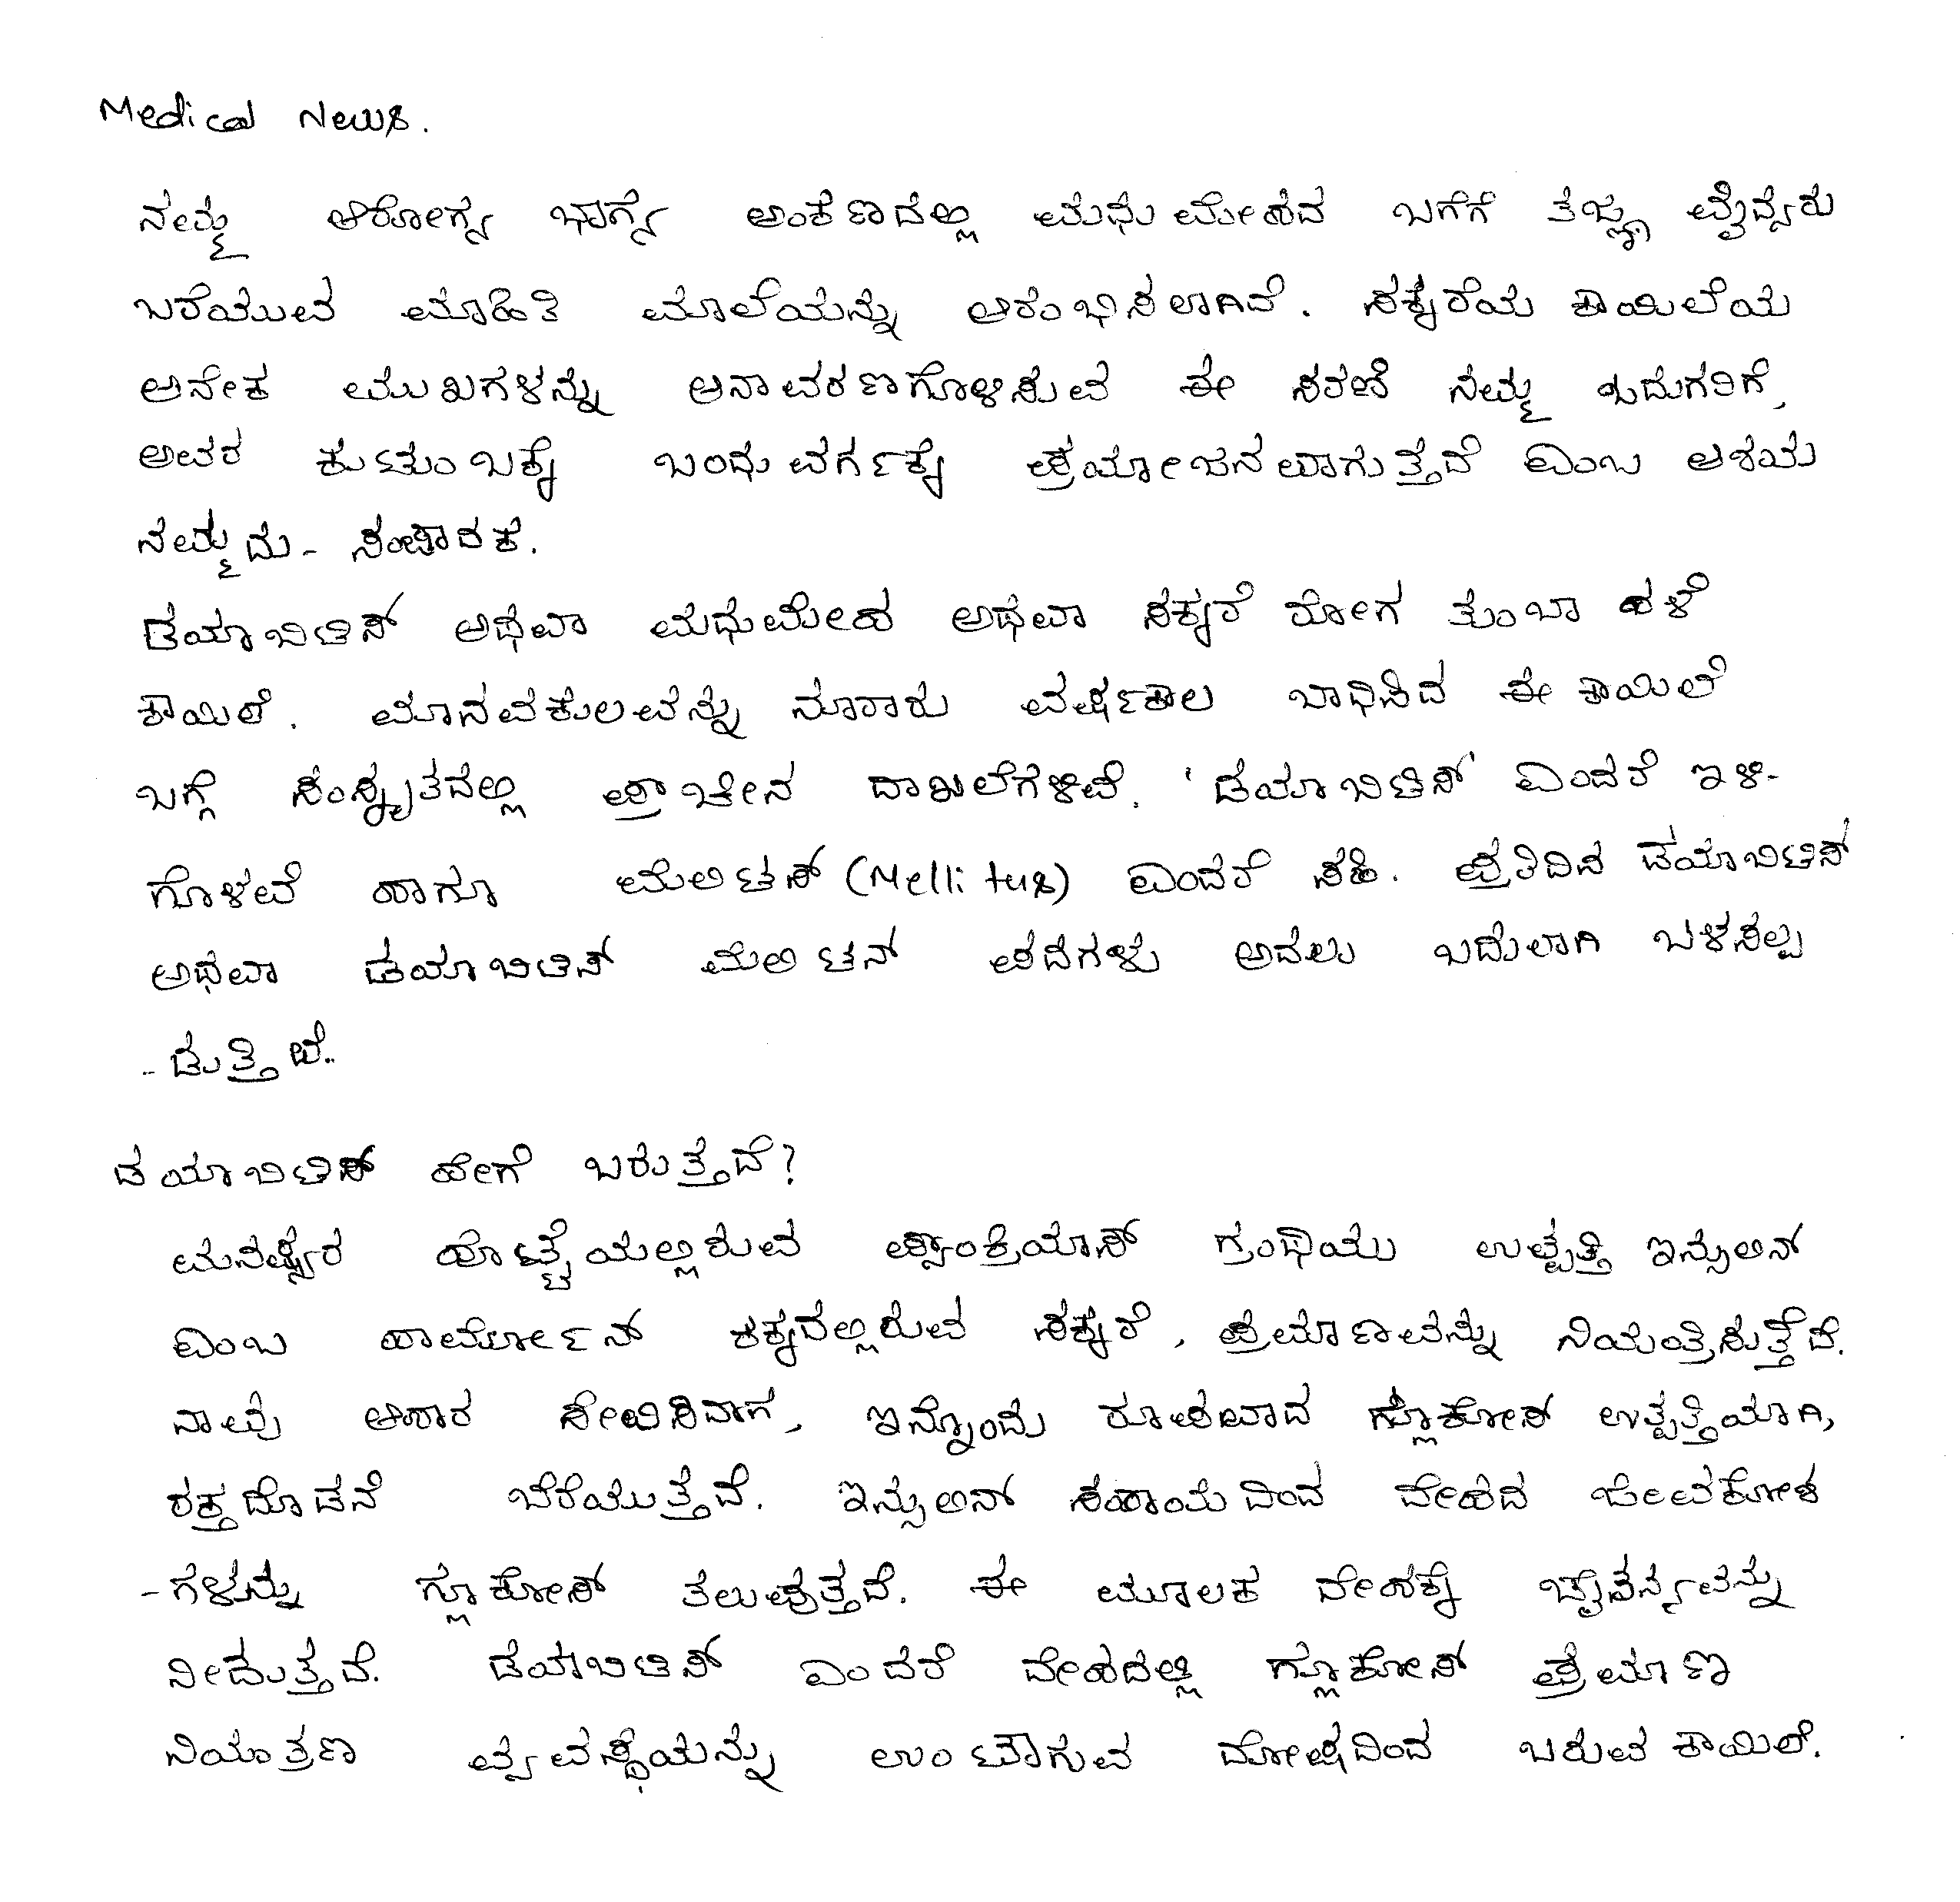 Medical News.
ನಮ್ಮ ಆರೋಗ್ಯ ಭಾಗ್ಯ ಅಂಕಣದಲ್ಲಿ ಮಧುಮೇಹದ ಬಗೆಗೆ ತಜ್ಞ ವೈದ್ಯರು
ಬರೆಯುವ ಮಾಹಿತಿ ಮಾಲೆಯನ್ನು ಆರಂಭಿಸಲಾಗಿದೆ. ಸಕ್ಕರೆಯ ಕಾಯಿಲೆಯ
ಅನೇಕ ಮುಖಗಳನ್ನು ಅನಾವರಣಗೊಳಿಸುವ ಈ ಸರಣಿ ನಮ್ಮ ಓದುಗರಿಗೆ,
ಅವರ ಕುಟುಂಬಕ್ಕೆ ಬಂಧುವರ್ಗಕ್ಕೆ ಪ್ರಯೋಜನವಾಗುತ್ತದೆ ಎಂಬ ಆಶಯ
ನಮ್ಮದು- ಸಂಪಾದಕ.
ಡಯಾಬಿಟಿಸ್ ಅಥವಾ ಮಧುಮೇಹ ಅಥವಾ ಸಕ್ಕರೆ ರೋಗ ತುಂಬಾ ಹಳೆ
ಕಾಯಿಲೆ. ಮಾನವಕುಲವನ್ನು ನೂರಾರು ವರ್ಷಕಾಲ ಬಾಧಿಸಿದ ಈ ಕಾಯಿಲೆ
ಬಗ್ಗೆ ಸಂಸ್ಕೃತದಲ್ಲಿ ಪ್ರಾಚೀನ ದಾಖಲೆಗಳಿವೆ. 'ಡಯಾಬಿಟಿಸ್' ಎಂದರೆ ಇಳಿ-
ಗೊಳವೆ ಹಾಗೂ ಮೆಲಿಟಸ್ (Mellitus) ಎಂದರೆ ಸಹಿ. ಪ್ರತಿದಿನ ಡಯಾಬಿಟಿಸ್
ಅಥವಾ ಡಯಾಬಿಟಿಸ್ ಮೆಲಿಟಸ್ ಪದಗಳು ಅದಲು ಬದಲಾಗಿ ಬಳಸಲ್ಪ
-ಡುತ್ತಿವೆ.
ಡಯಾಬಿಟಿಸ್ ಹೇಗೆ ಬರುತ್ತದೆ?
ಮನುಷ್ಯರ ಹೊಟ್ಟೆಯಲ್ಲಿರುವ ಪ್ಯಾಂಕ್ರಿಯಾಸ್ ಗ್ರಂಥಿಯು ಉತ್ಪತ್ತಿ ಇನ್ಸುಲಿನ್
ಎಂಬ ಹಾರ್ಮೋನ್ ರಕ್ತದಲ್ಲಿರುವ ಸಕ್ಕರೆ, ಪ್ರಮಾಣವನ್ನು ನಿಯಂತ್ರಿಸುತ್ತದೆ.
ನಾವು ಆಹಾರ ಸೇವಿಸಿದಾಗ, ಇನ್ನೊಂದು ರೂಪವಾದ ಗ್ಲೂಕೋಸ್ ಉತ್ಪತ್ತಿಯಾಗಿ,
ರಕ್ತದೊಡನೆ ಬೆರೆಯುತ್ತದೆ. ಇನ್ಸುಲಿನ್ ಸಹಾಯದಿಂದ ದೇಹದ ಜೀವಕೋಶ
-ಗಳನ್ನು ಗ್ಲೂಕೋಸ್ ತಲುಪುತ್ತದೆ. ಈ ಮೂಲಕ ದೇಹಕ್ಕೆ ಚೈತನ್ಯವನ್ನು
ನೀಡುತ್ತದೆ. ಡಯಾಬಿಟಿಸ್ ಎಂದರೆ ದೇಹದಲ್ಲಿ ಗ್ಲೂಕೋಸ್ ಪ್ರಮಾಣ
ನಿಯಂತ್ರಣ ವ್ಯವಸ್ಥೆಯನ್ನು ಉಂಟಾಗುವ ದೋಷದಿಂದ ಬರುವ ಕಾಯಿಲೆ.